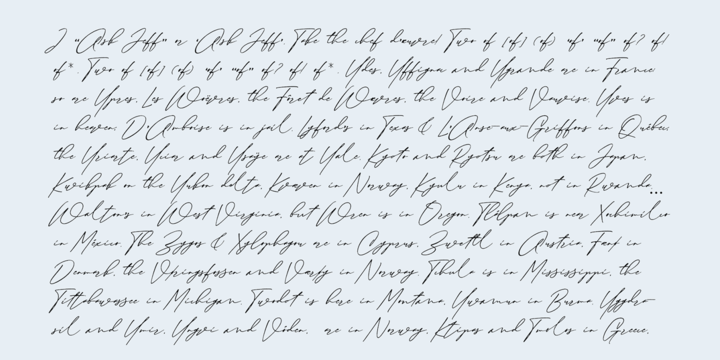 I "Ask Jeff" or 'Ask Jeff'. Take the chef d'œuvre! Two of [of] (of) 'of' "of" of? of!
of*. Two of [of] (of) 'of' "of" of? of! of*. Ydes, Yffignac and Ygrande are in France:
so are Ypres, Les Woëvres, the Fôret de Wœvres, the Voire and Vauvise. Yves is
in heaven; D'Amboise is in jail. Lyford's in Texas & L'Anse-aux-Griffons in Québec;
the Yriarte, Yciar and Ysaÿe are at Yale. Kyoto and Ryotsu are both in Japan,
Kwikpak on the Yukon delta, Kvæven in Norway, Kyulu in Kenya, not in Rwanda.…
Walton's in West Virginia, but Wren is in Oregon. Tlálpan is near Xochimilco
in México. The Zygos & Xylophagou are in Cyprus, Zwettl in Austria, Fænø in
Denmark, the Vøringsfossen and Værøy in Norway. Tchula is in Mississippi, the
Tittabawassee in Michigan. Twodot is here in Montana, Ywamun in Burma. Yggdra-
sil and Ymir, Yngvi and Vóden, are in Norway, Ktipas and Tmolos in Greece.